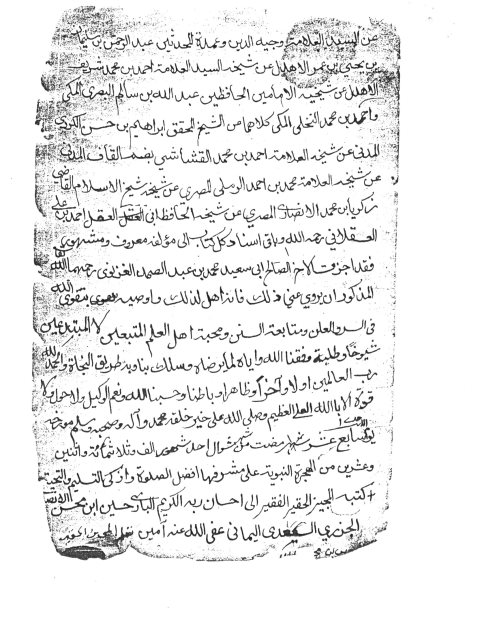 عن السيد العلامة وجيه الدين وعمدة المحدثين عبد الرحمن بن سليمان
بن يحيى بن عمر الاهدل عن شيخه السيد العلامة احمد بن محمد شريف
الاهدل عن شيخيه الامامين الحافظين عبد الله بن سالم البصري المكي
واحمد بن محمد النخلي المكي كلاهما عن الشيخ المحقق ابراهيم بن حسن الكردي
المدني عن شيخه العلامة احمد بن محمد القشاشي بضم القاف المدني
عن شيخه العلامة محمد بن احمد الرملي المصري عن شيخه شيخ الاسلام القاضي
زكريا بن محمد الانصاري المصري عن شيخه الحافظ ابي الفضل احمد بن علي
العسقلاني رحمه الله وباقي اسناد كل كتاب الى مؤلفه معروف ومشهور
فقد اجزت الاخ الصالح ابي سعيد محمد بن عبد الصمد الغزنوي رحمهما الله
المذكور ان يروي عني ذلك فانه اهل لذلك واوصيه بتقوى الله
في السر والعلن ومتابعة السنن ومحبة اهل العلم المتبعين لا المبتدعين
شيوخا وطلبة وفقنا الله واياه لما يرضاه وسلك بنا وبه طريق النجاة والحمد لله
رب العالمين اولا وآخرا وظاهرا وباطنا وحسبنا الله ونعم الوكيل ولا حول ولا
قوة الا بالله العلي العظيم وصلى الله على خير خلقه محمد وآله وصحبه وسلم
سابع عشر مضت من شوال احد شهور الف وثلاثمائة واثنين
وعشرين من الهجرة النبوية على مشرفها افضل الصلوة وازكى التسليم والتحية
كتبه المجيز الحقير الفقير الى احسان ربه الكريم الباري حسين ابن محسن الانصاري
الخزرجي السعدي اليماني عفى الله عنه آمين